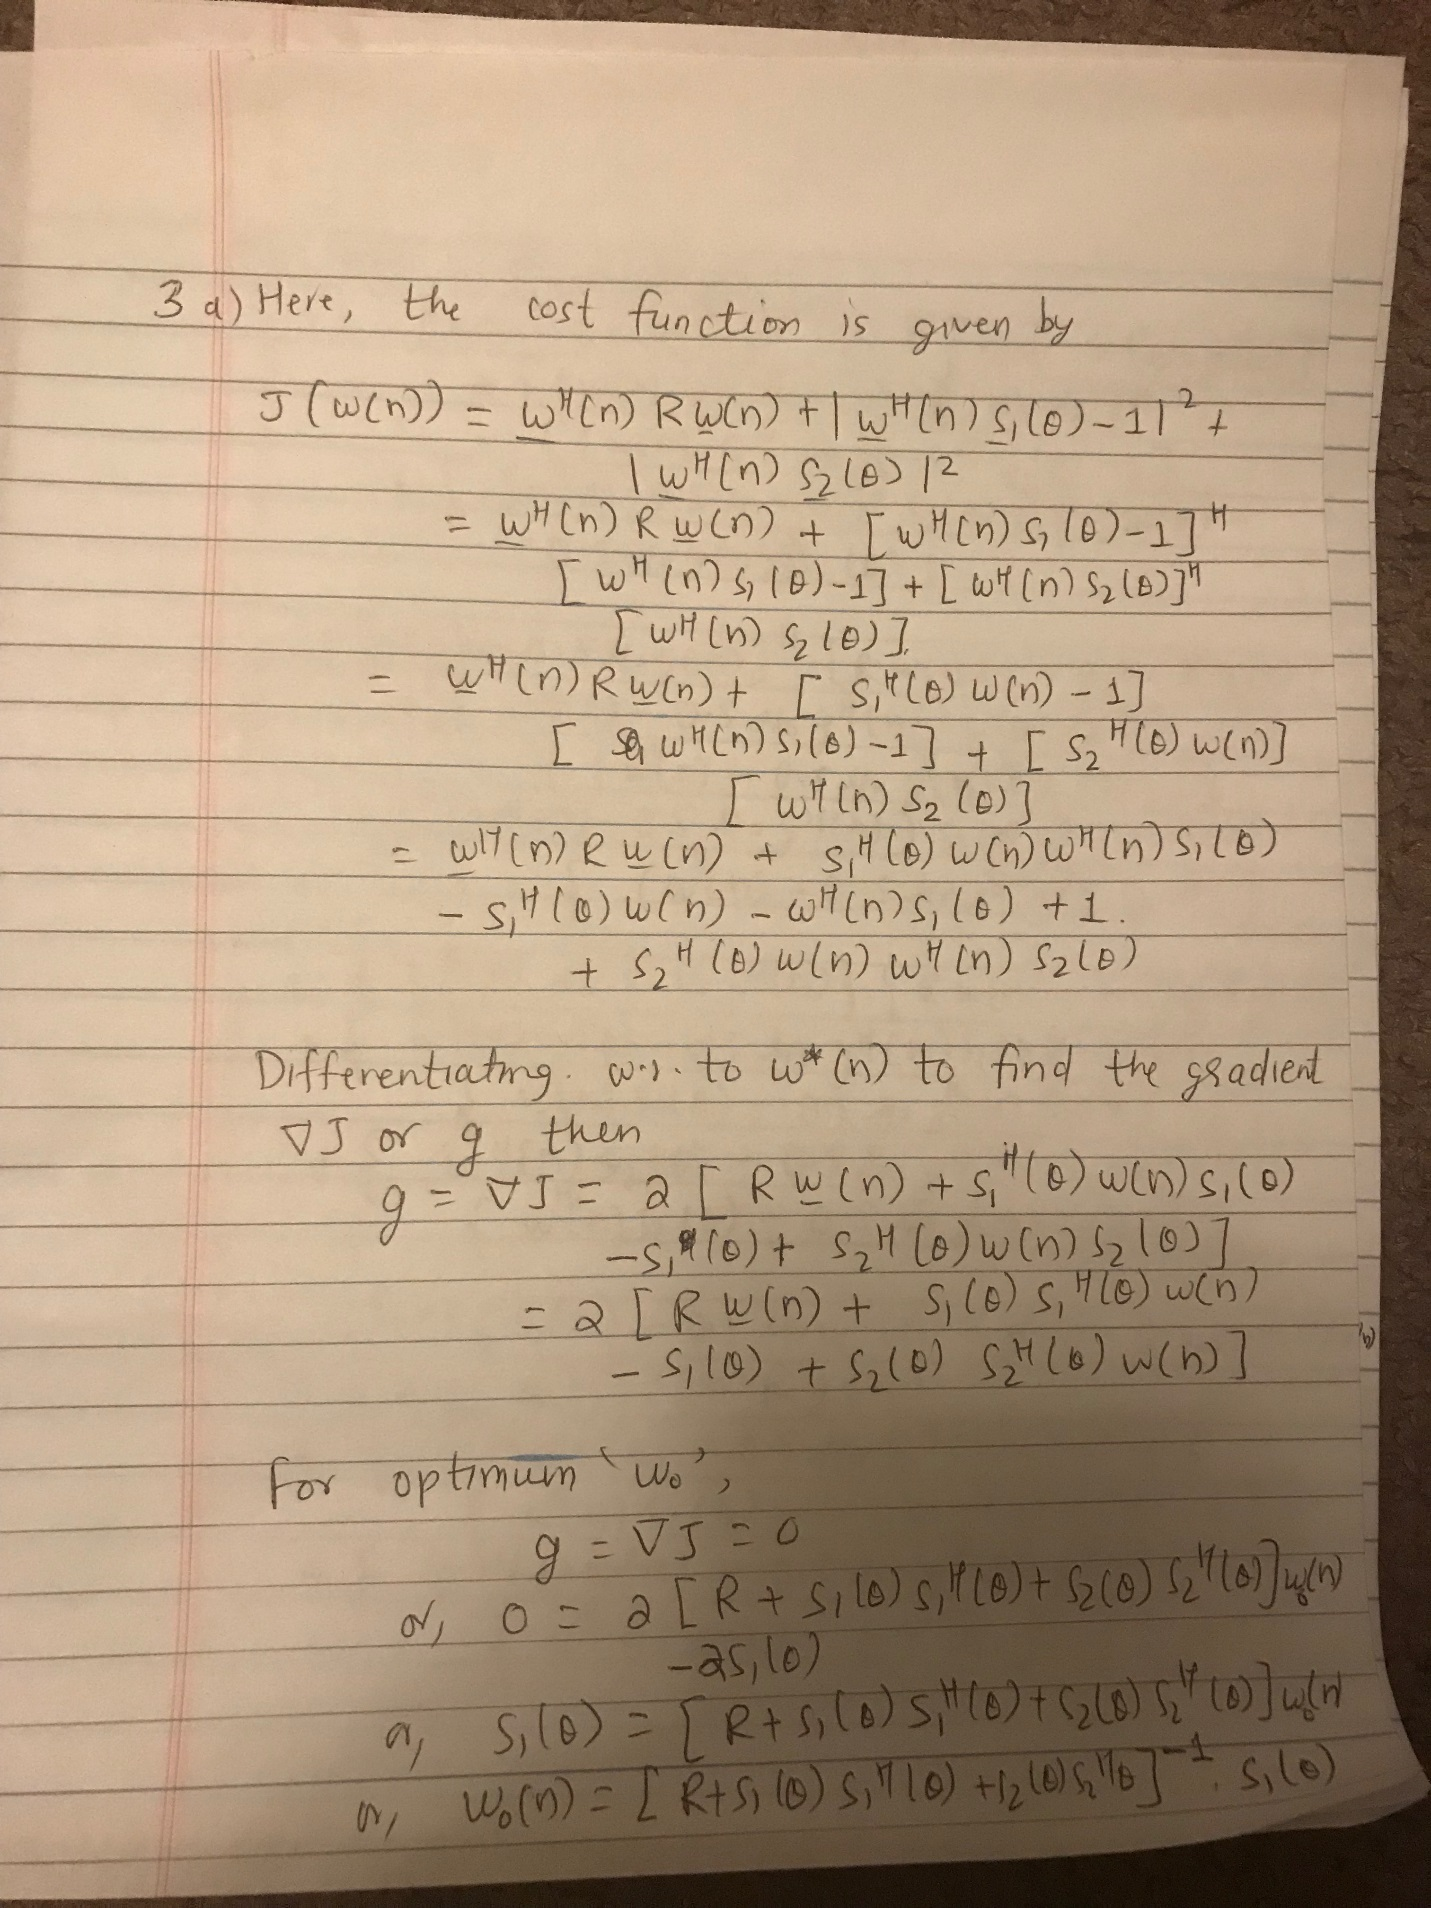 3 a) Here, the cost function is given by
J(w(n)) = w^H(n) R w(n) + |w^H(n) s₁(θ) - 1|² +
|w^H(n) s₂(θ)|²
= w^H(n) R w(n) + [w^H(n) s₁(θ) - 1]^H
[w^H(n) s₁(θ) - 1] + [w^H(n) s₂(θ)]^H
[w^H(n) s₂(θ)].
= w^H(n) R w(n) + [s₁^H(θ) w(n) - 1]
[w^H(n) s₁(θ) - 1] + [s₂^H(θ) w(n)]
[w^H(n) s₂(θ)]
= w^H(n) R w(n) + s₁^H(θ) w(n) w^H(n) s₁(θ)
- s₁^H(θ) w(n) - w^H(n) s₁(θ) + 1.
+ s₂^H(θ) w(n) w^H(n) s₂(θ)
Differentiating. w.r. to w*(n) to find the gradient
∇J or g then
g = ∇J = 2 [R w(n) + s₁^H(θ) w(n) s₁(θ)
- s₁(θ) + s₂^H(θ) w(n) s₂(θ)]
= 2 [R w(n) + s₁(θ) s₁^H(θ) w(n)
- s₁(θ) + s₂(θ) s₂^H(θ) w(n)]
For optimum 'w₀',
g = ∇J = 0
or, 0 = 2 [R + s₁(θ) s₁^H(θ) + s₂(θ) s₂^H(θ)] w₀(n)
- 2s₁(θ)
or, s₁(θ) = [R + s₁(θ) s₁^H(θ) + s₂(θ) s₂^H(θ)] w₀(n)
or, w₀(n) = [R + s₁(θ) s₁^H(θ) + s₂(θ) s₂^H θ]^-1 . s₁(θ)